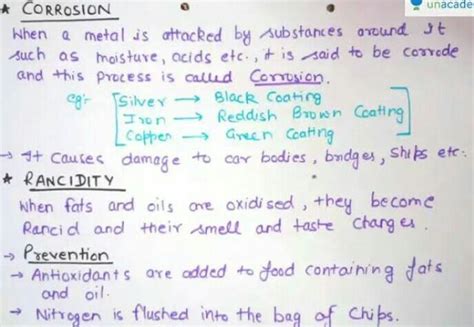 unacade
* CORROSION
When a metal is attacked by substances around it
such as moisture, acids etc., it is said to be corrode
and this process is called Corrosion.
eg:- Silver → Black Coating
Iron → Reddish Brown Coating
Copper → Green Coating
→ It causes damage to car bodies, bridges, Ships etc.
* RANCIDITY
When fats and oils are oxidised, they become
Rancid and their smell and taste changes.
→ Prevention
→ Antioxidants are added to food containing fats
and oil.
→ Nitrogen is flushed into the bag of Chips.